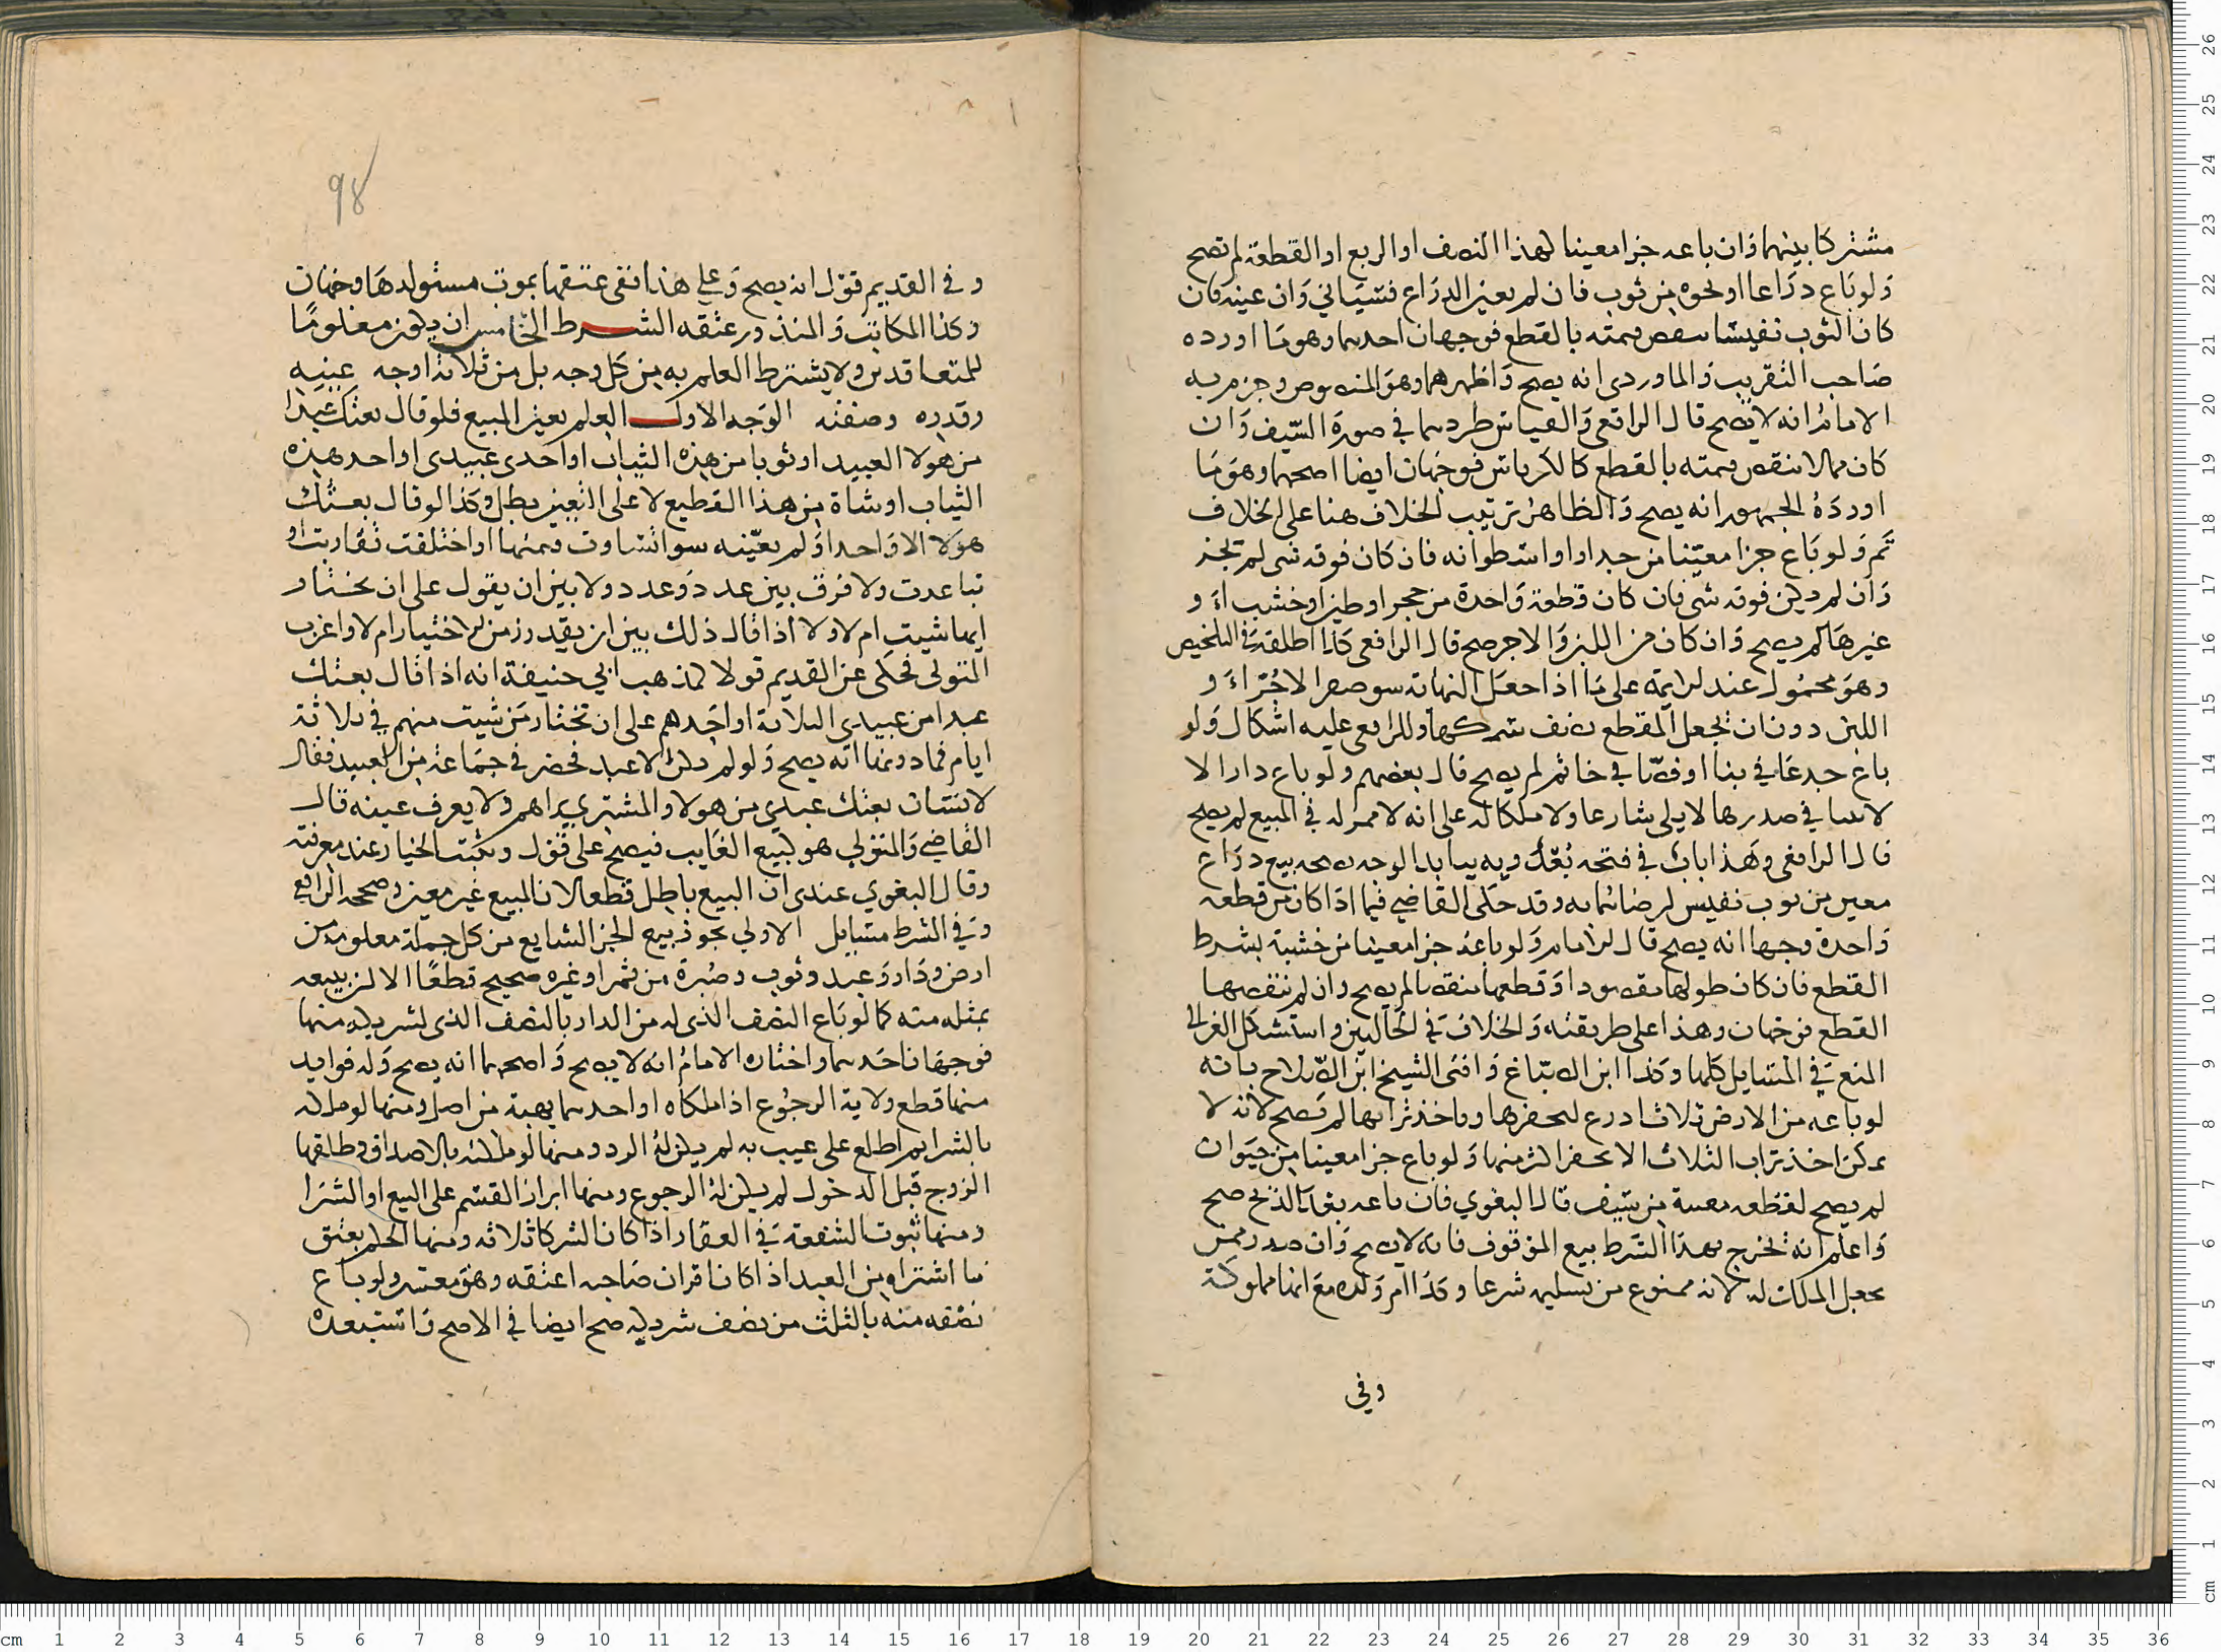 مشتركا بينهما فان باعه جزا معينا لهذا النصف او الربع او القطعة لم تصح
ولو باع ذراعا او نحوه من ثوب فان لم يعين الذراع فسياتي وان عينه فان
كان الثوب نفيسا ينقص قيمته بالقطع فوجهان احدهما وهو ما اورده
صاحب التقريب والماوردي انه يصح واظهرهما وهو المنصوص وجزم به
الامام انه لا يصح قال الرافعي والقياس طردهما في صورة السيف وان
كان مما لا ينقص قيمته بالقطع كالكرباس فوجهان ايضا اصحهما وهو ما
اورده الجمهور انه يصح والظاهر ترتيب الخلاف هنا على الخلاف
ثم ولو باع جزا معينا من جدار او اسطوانه فان كان فوقه شي لم تجز
وان لم يكن فوقه شي فان كان قطعة واحدة من حجر او طين او خشب او
غيرها لم يصح وان كان من اللبن والاجر صح قال الرافعي كذا اطلقه في التلخيص
وهو محمول عند الايمة على ما اذا جعل النهاية سوى صف من الاجر او
اللبن دون ان تجعل المقطع نصف سمكها وللرافعي عليه اشكال ولو
باع جذعا في بنا او فصا في خاتم لم يصح قال بعضهم ولو باع دارا الا
لا يلي شارعا ولا ملكا له على انه لا ممر له في المبيع لم يصح
قال الرافعي وهذا باب في فتحه بعد وبه
معين من ثوب نفيس وقد حكى القاضي فيما اذا كان من قطعه
واحدة وجها انه يصح قال الامام ولو باعه جزا معينا من خشبة بشرط
القطع فان كان طولها مقصودا وقطعها ينقصها لم يصح وان لم ينقصها
القطع فوجهان وهذا على طريقته والخلاف في الحالين واستشكل الغزالي
المنع في المسايل كلها وكذا ابن الصباغ وافتى الشيخ ابن الصلاح بانه
لو باعه من الارض ثلاث اذرع ليحفرها وياخذ ترابها لم يصح لانه لا
يمكن اخذ تراب الثلاث الا بحفر اكثر منها ولو باع جزا معينا من حيوان
لم يصح لقطعه معينة من سيف قال البغوي فان باعه الذبح صح
واعلم انه تخرج بهذا الشرط بيع الموقوف فانه لا يصح وان صدر ممن
يجعل الملك له لانه ممنوع من تسليمه شرعا وكذا ام ولده مع انها مملوكة
وفي
98
وفي القديم قول انه يصح وعلى هذا ففي عتقها بموت مستولدها وجهان
وكذا المكاتب والمنذور عتقه الشرط الخامس ان يكون معلوما
للمتعاقدين ولا يشترط العلم به من كل وجه بل من ثلاثة اوجه عينه
وقدره وصفته الوجه الاول العلم بعين المبيع فلو قال بعتك عبدا
من هولا العبيد او ثوبا من هذه الثياب او احدى عبيدي او احد هذه
الثياب او شاة من هذا القطيع لا على التعيين بطل وكذا لو قال بعتك
هولا الا واحدا ولم يعينه سوا تساوت قيمتها او اختلفت تقاربت او
تباعدت ولا فرق بين عدد وعدد ولا بين ان يقول على ان تختار
ايها شيت ام لا ولا اذا قال ذلك بين ان يقدر زمن الاختيار ام لا واغرب
المتولي فحكى عن القديم قولا كمذهب ابي حنيفة انه اذا قال بعتك
عبدا من عبيدي الثلاثة او احدهم على ان تختار من شيت منهم في ثلاثة
ايام فما دونها انه يصح ولو لم يكن له الا عبد فحضر في جماعة من العبيد فقال
لانسان بعتك عبدي من هولا والمشتري يراهم ولا يعرف عينه قال
القاضي والمتولي هو كبيع الغايب فيصح على قول ويثبت الخيار عند معرفته
وقال البغوي عندي ان البيع باطل قطعا لان المبيع غير معين وصححه الرافعي
وفي الشرط مسايل الاولى يجوز بيع الجز الشايع من كل جملة معلومة من
ارض ودار وعبد وثوب وصبرة من ثمر او غيره صحيح قطعا الا ان يبيعه
بمثله منه كما لو باع النصف الذي له من الدار بالنصف الذي لشريكه منها
فوجهان احدهما واختاره الامام انه لا يصح واصحهما انه يصح وله فوايد
منها قطع ولاية الرجوع اذا ملكاه او احدهما بهبة من اصل ومنها لو ملكه
بالشرا ثم اطلع على عيب به لم يكن له الرد ومنها لو ملكته بالاصداق وطلقها
الزوج قبل الدخول لم يكن له الرجوع ومنها ابراز القسم على البيع او الشرا
ومنها ثبوت الشفعة في العقار اذا كان الشركا ثلاثه ومنها الحكم بعتق
ما اشتراه من العبد اذا كانا اقران صاحبه اعتقه وهو معسر ولو باع
نصفه منه بالثلث من نصف شريكه صح ايضا في الاصح واستبعده